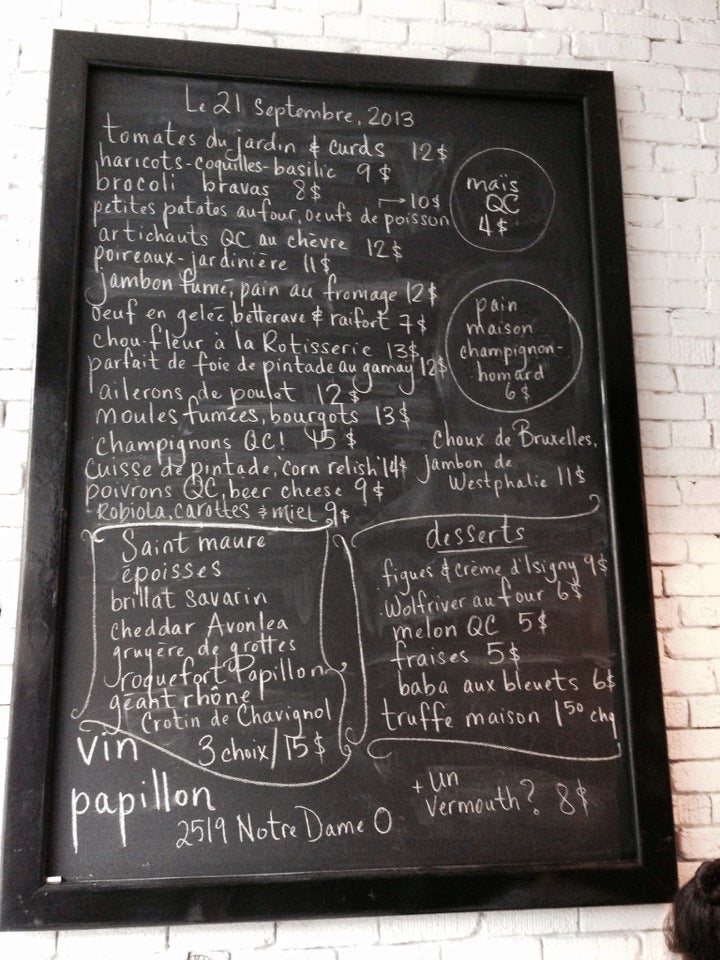 Le 21 Septembre, 2013
tomates du jardin & curds 12$
haricots-coquilles-basilic 9$
brocoli bravas 8$
petites patates au four, oeufs de poisson → 10$
artichauts QC au chèvre 12$
poireaux-jardinière 11$
jambon fumé, pain au fromage 12$
oeuf en gelée, betterave & raifort 7$
chou-fleur à la Rotisserie 13$
parfait de foie de pintade au gamay 12$
ailerons de poulet 12$
moules fumées, bourgots 13$
champignons QC! 15$
cuisse de pintade, corn relish 14$
poivrons QC, beer cheese 9$
Robiola, carottes & miel 9$
maïs
QC
4$
pain
maison
champignon-
homard
6$
choux de Bruxelles,
jambon de
Westphalie 11$
Saint maure
époisses
brillat Savarin
cheddar Avonlea
gruyère de grottes
roquefort Papillon
géant rhône
Crotin de Chavignol
3 choix/15$
desserts
figues & crème d'Isigny 9$
Wolfriver au four 6$
melon QC 5$
fraises 5$
baba aux bleuets 6$
truffe maison 1 50 chq
vin
papillon
2519 Notre Dame O
+ un
vermouth? 8$